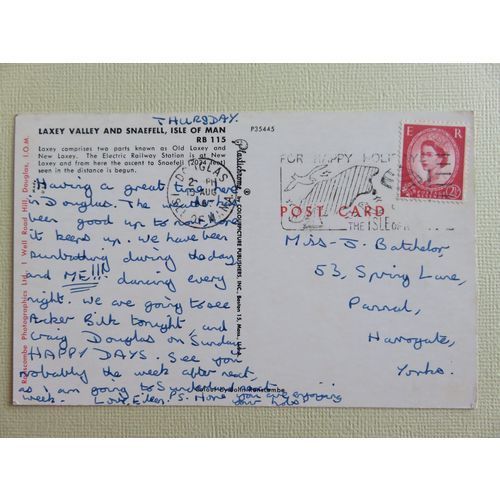 THURSDAY.
LAXEY VALLEY AND SNAEFELL, ISLE OF MAN
RB 115
Laxey comprises two parts known as Old Laxey and
New Laxey. The Electric Railway Station is at New
Laxey and from here the ascent to Snaefell (2034 feet)
seen in the distance is begun.
Having a great time here
in Douglas. The weather has
been good up to now, hope
it keeps up. We have been
sunbathing during the day,
and ME!!! dancing every
night. We are going to see
Acker Bilk tonight, and
Craig Douglas on Sunday.
HAPPY DAYS. See you
probably the week after next,
as I am going to Sunderland next
week. Love, Eileen. P.S. Hope you are enjoying
your hols
Ranscombe Photographics Ltd., 1 Well Road Hill, Douglas, I.O.M.
Plastichrome ® by COLOURPICTURE PUBLISHERS, INC., Boston 15, Mass., U.S.A.
Ranscombe
P35445
DOUGLAS
2 - PM
15 AUG
ISLE OF MAN
FOR HAPPY HOLIDAYS
THE ISLE OF
POST CARD
E R
2½D
Miss J. Batchelor,
53, Spring Lane,
Pannal,
Harrogate,
Yorks.